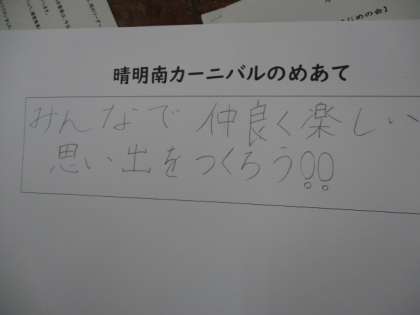 めの会】
晴明南カーニバルのめあて
みんなで 仲良く楽しい
思い出をつくろう!!